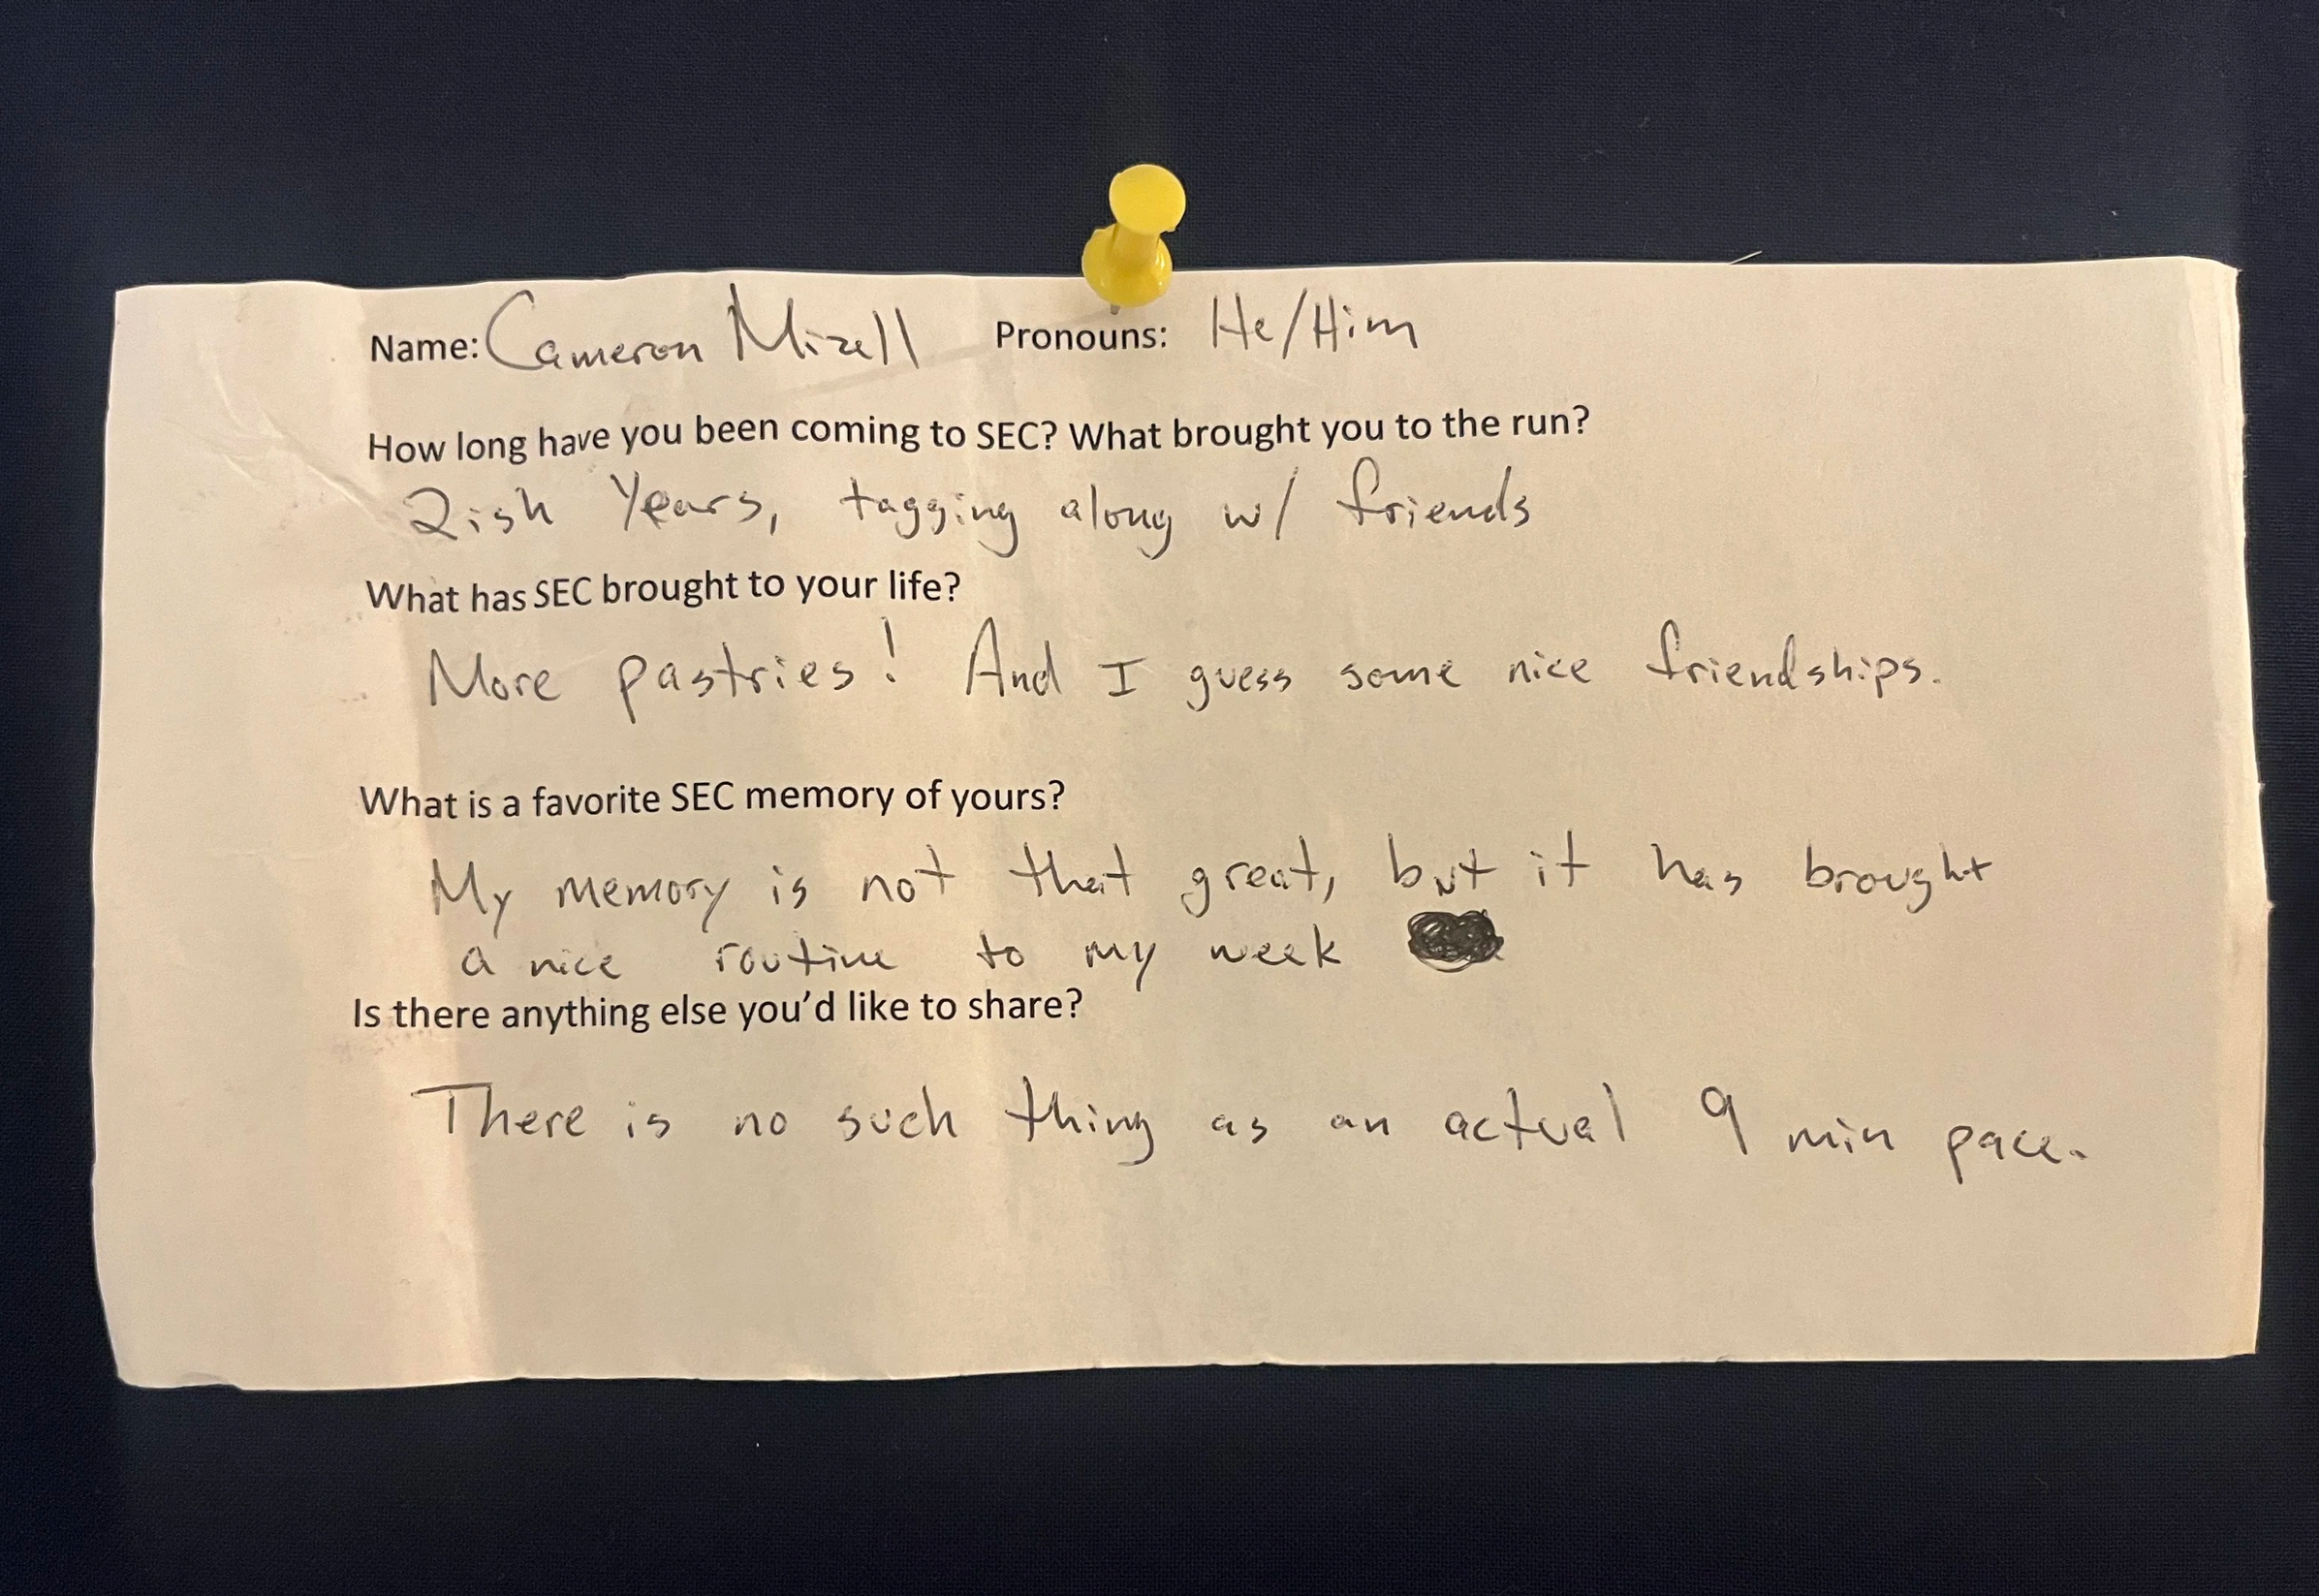 Name: Cameron Mizell Pronouns: He/Him
How long have you been coming to SEC? What brought you to the run?
2ish Years, tagging along w/ friends
What has SEC brought to your life?
More pastries! And I guess some nice friendships.
What is a favorite SEC memory of yours?
My memory is not that great, but it has brought
a nice routine to my week
Is there anything else you'd like to share?
There is no such thing as an actual 9 min pace.